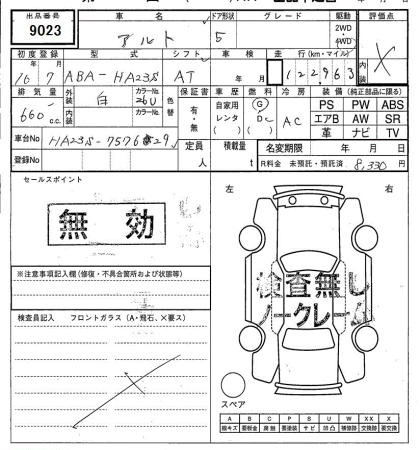 出品番号 車名 ドア形状 グレード 駆動 評価点
9023 アルト 5 2WD・4WD X
初度登録 型式 シフト 車検 走行(km・マイル) 内装
16年7月 ABA-HA23S AT 年 月 12296
排気量 外装 白 カラーNo. 26U 色替 保証書 車歴 燃料 冷房 装備(純正部品に限る)
660 c.c. 内装 カラーNo. 有・無 自家用 レンタ ( ) G D ( ) AC PS PW ABS
エアB AW SR
革 ナビ TV
車台No HA23S-7576 29 定員 人 積載量 t 名変期限 年 月 日
登録No R料金 未預託・預託済 8,330円
セールスポイント
無効
左 右
※注意事項記入欄(修復・不具合箇所および状態等)
検査無し
ノークレーム
検査員記入 フロントガラス(A・飛石、×要ス)
スペア
A B C P S U W XX X
線キズ 要板金 腐蝕 要塗装 サビ 凹凸 補修跡 交換跡 要交換